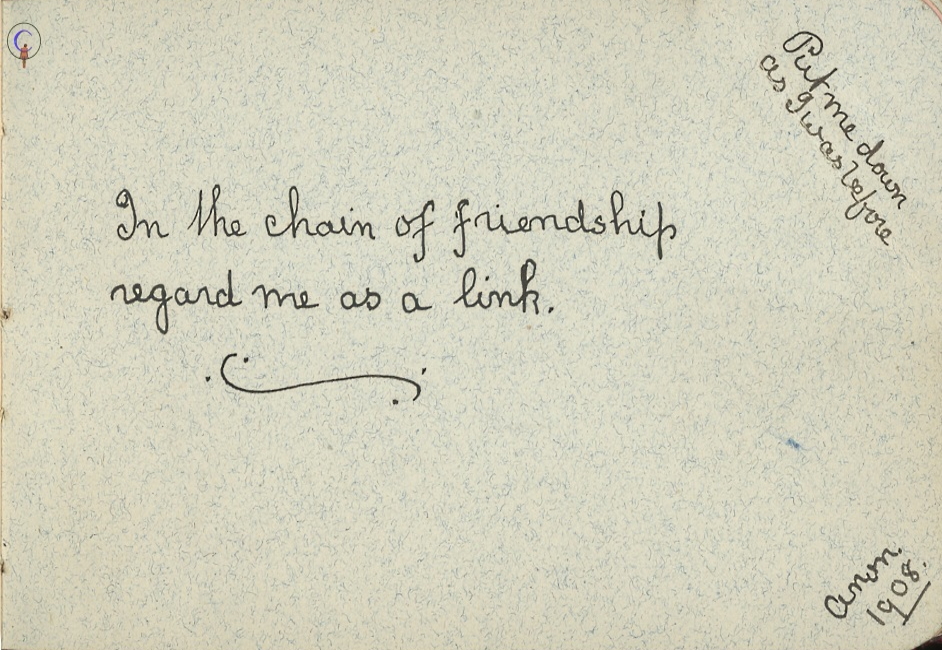 Put me down
as I was before
In the chain of friendship
regard me as a link.
anon.
1908.